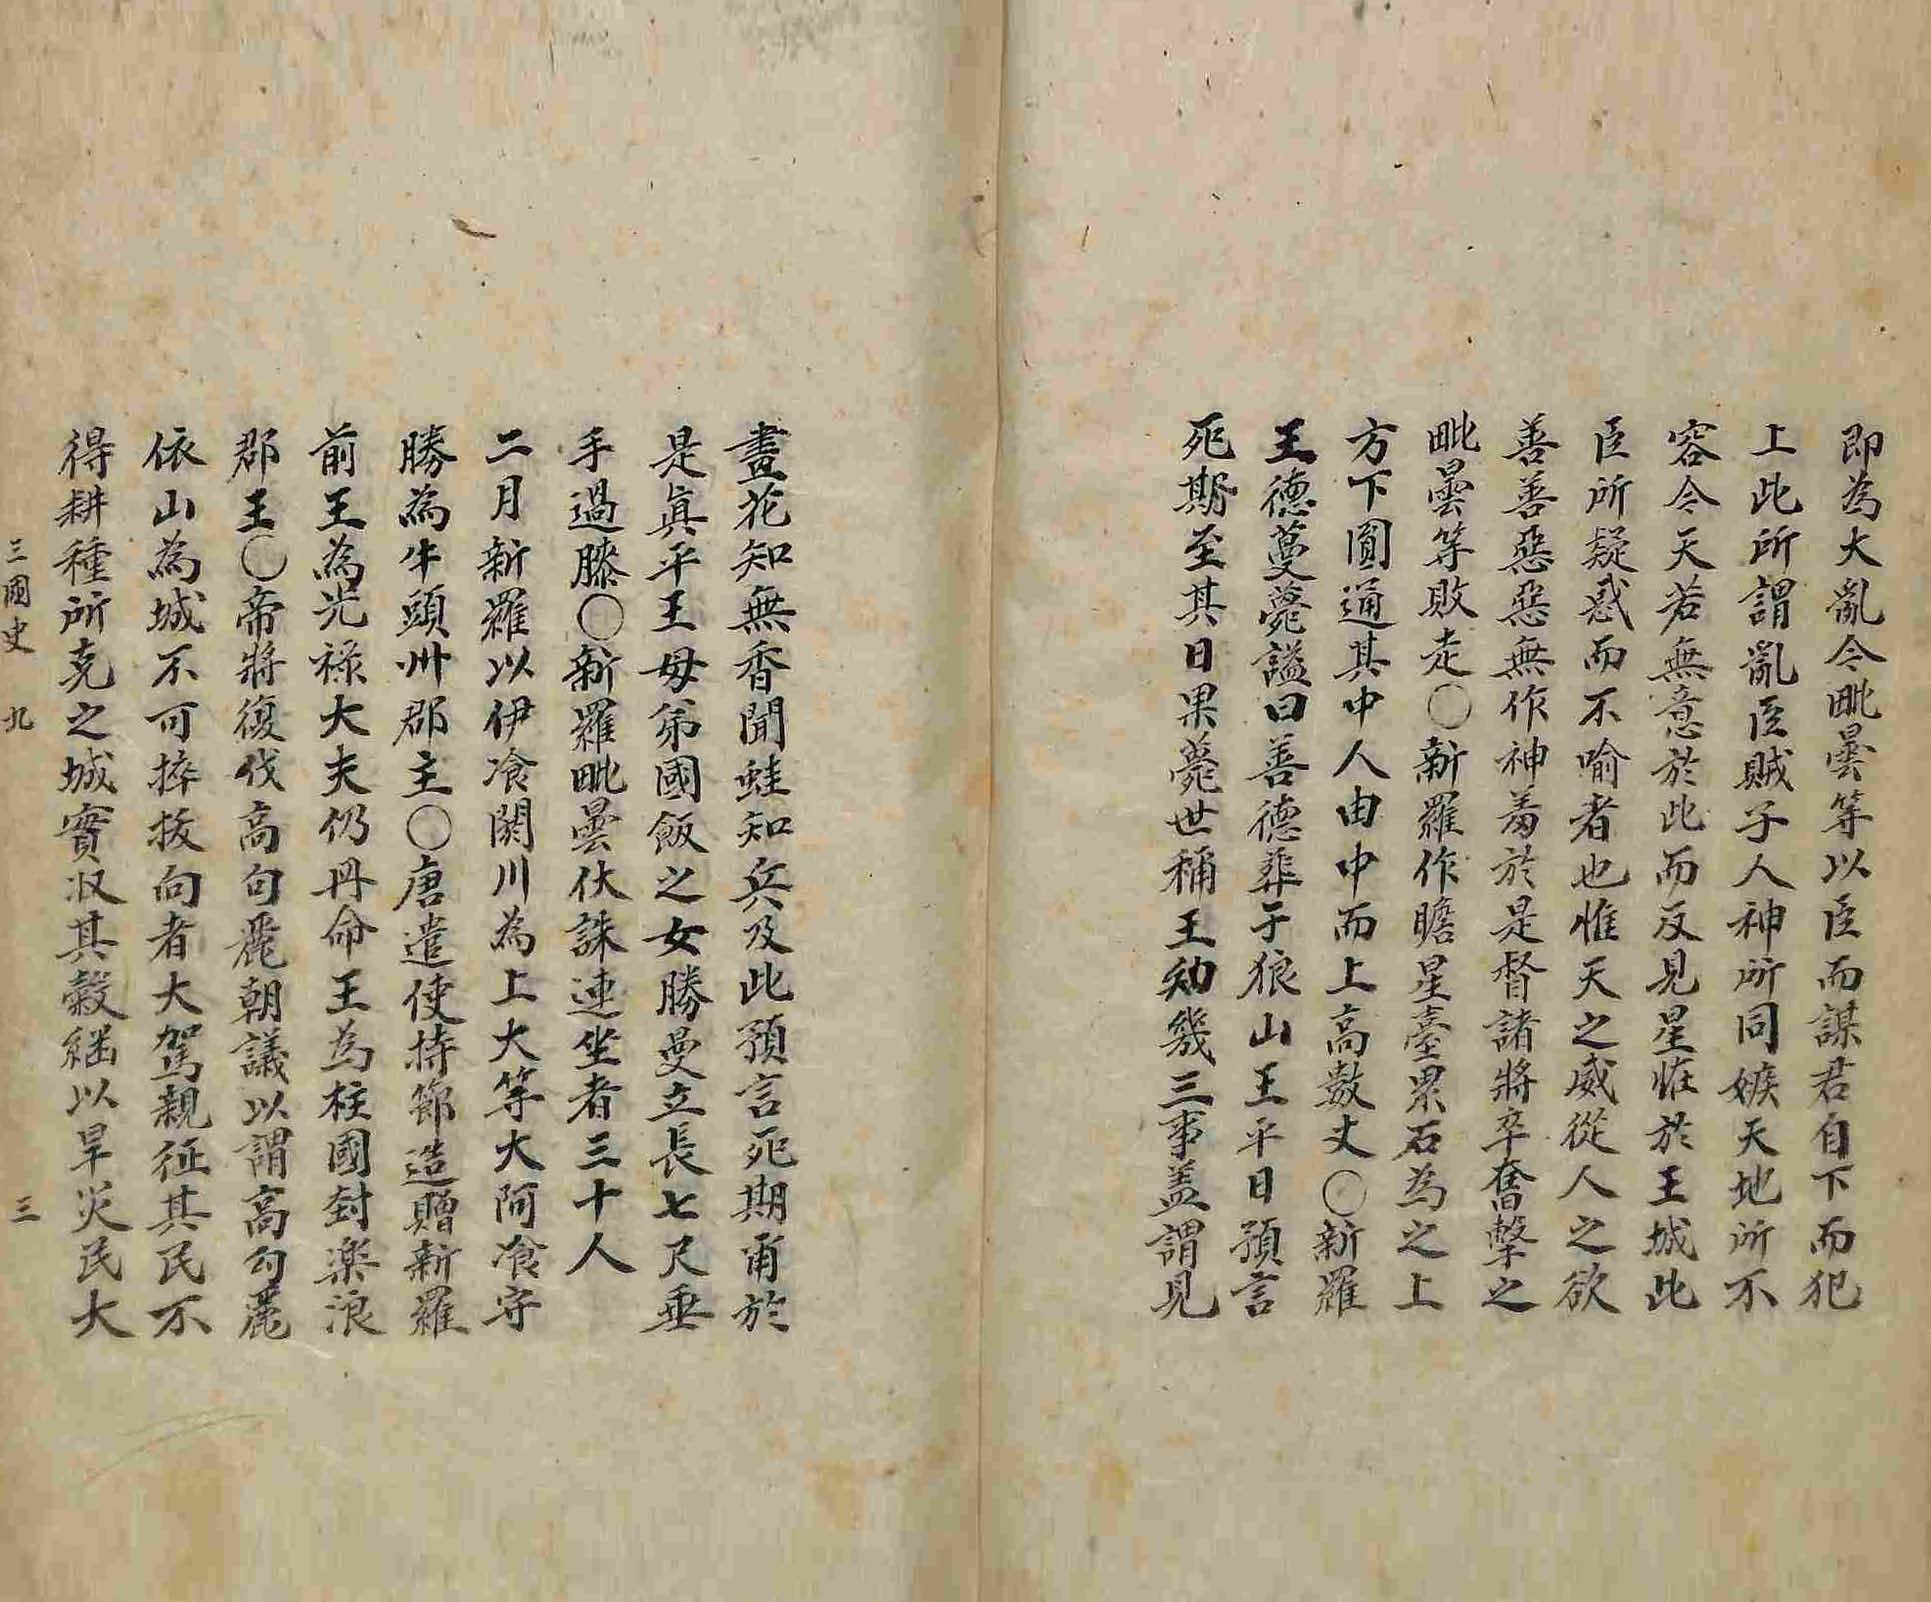 即為大亂今毗曇等以臣而謀君自下而犯
上此所謂亂臣賊子人神所同嫉天地所不
容今天若無意於此而反見星怪於王城此
臣所疑惑而不喻者也惟天之威從人之欲
善善惡惡無作神羞於是督諸將卒奮擊之
毗曇等敗走〇新羅作瞻星臺累石為之上
方下圓通其中人由中而上高數丈〇新羅
王德蔓薨謚曰善德葬于狼山王平日預言
死期至其日果薨世稱王知幾三事盖謂見
畫花知無香聞蛙知兵及此預言死期甫於
是眞平王母弟國飯之女勝曼立長七尺垂
手過膝〇新羅毗曇伏誅連坐者三十人
二月新羅以伊飡閼川為上大等大阿飡守
勝為牛頭州郡主〇唐遣使持節造贈新羅
前王為光祿大夫仍冊命王為柱國封楽浪
郡王〇帝將復伐高句麗朝議以謂高勾麗
依山為城不可捽拔向者大駕親征其民不
得耕種所克之城實收其穀繼以旱災民大
三國史 九 三